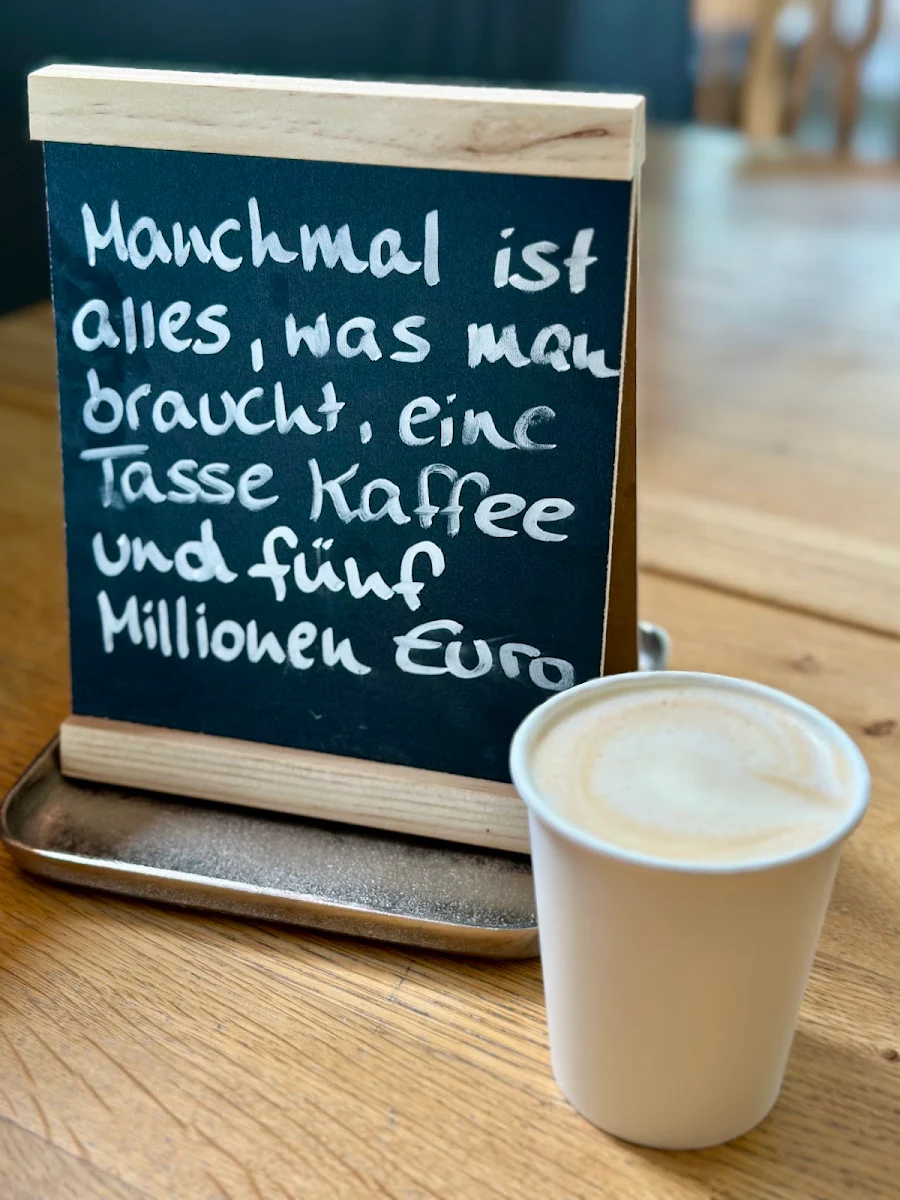 Manchmal ist
alles, was man
braucht, eine
Tasse Kaffee
und fünf
Millionen Euro